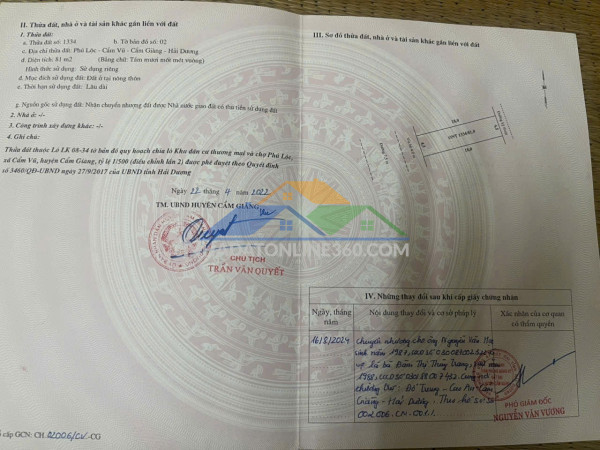 II. Thửa đất, nhà ở và tài sản khác gắn liền với đất
1. Thửa đất:
a. Thửa đất số: 1334 b. Tờ bản đồ số: 02
c. Địa chỉ thửa đất: Phú Lộc - Cẩm Vũ - Cẩm Giàng - Hải Dương
d. Diện tích: 81 m2 (Bằng chữ: Tám mươi mốt mét vuông)
Hình thức sử dụng: Sử dụng riêng
đ. Mục đích sử dụng: Đất ở tại nông thôn
e. Thời hạn sử dụng: Lâu dài
g. Nguồn gốc sử dụng đất: Nhận chuyển nhượng đất được Nhà nước giao đất có thu tiền sử dụng đất
2. Nhà ở: -/-
3. Công trình xây dựng khác: -/-
4. Ghi chú:
Thửa đất thuộc Lô LK 08-34 tờ bản đồ quy hoạch chia lô Khu dân cư thương mại và chợ Phú Lộc,
xã Cẩm Vũ, huyện Cẩm Giàng, tỷ lệ 1/500 (điều chỉnh lần 2) được phê duyệt theo Quyết định
số 3460/QĐ-UBND ngày 27/9/2017 của UBND tỉnh Hải Dương
Ngày 22 tháng 4 năm 2022
TM. UBND HUYỆN CẨM GIÀNG
CHỦ TỊCH
TRẦN VĂN QUYẾT
cấp GCN: CH 02006/CV-CG
NHADATONLINE360.COM
III. Sơ đồ thửa đất, nhà ở và tài sản khác gắn liền với đất
IV. Những thay đổi sau khi cấp giấy chứng nhận
Ngày, tháng, năm
Nội dung thay đổi và cơ sở pháp lý
Xác nhận của cơ quan có thẩm quyền
16/8/2024
Chuyển nhượng cho ông Nguyễn Văn
sinh năm 1987,
vợ là bà Đàm Thị Thùy Trang,
1988,
Đỗ Trung - Cao An - Cẩm
Giàng - Hải Dương. Theo hồ sơ số
PHÓ GIÁM ĐỐC
NGUYỄN VĂN VƯƠNG